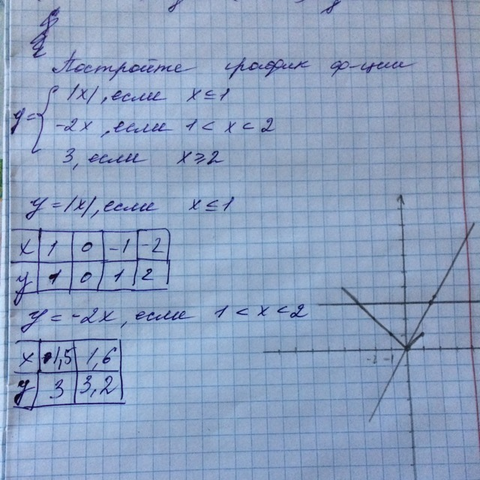 Постройте график ф-ции
y = { |x|, если x ≤ 1
-2x, если 1 < x < 2
3, если x ≥ 2
y = |x|, если x ≤ 1
x 1 0 -1 -2
y 1 0 1 2
y = -2x, если 1 < x < 2
x 1,5 1,6
y 3 3,2
-2 -1